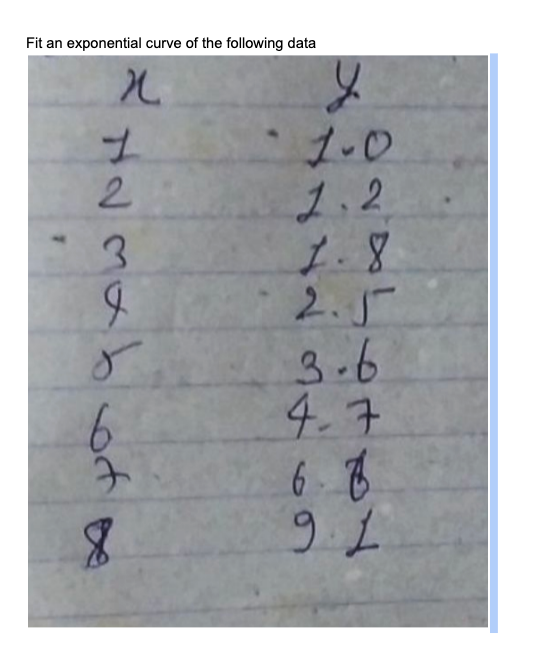 Fit an exponential curve of the following data
x y
1 1.0
2 1.2
3 1.8
4 2.5
5 3.6
6 4.7
7 6.6
8 9.1